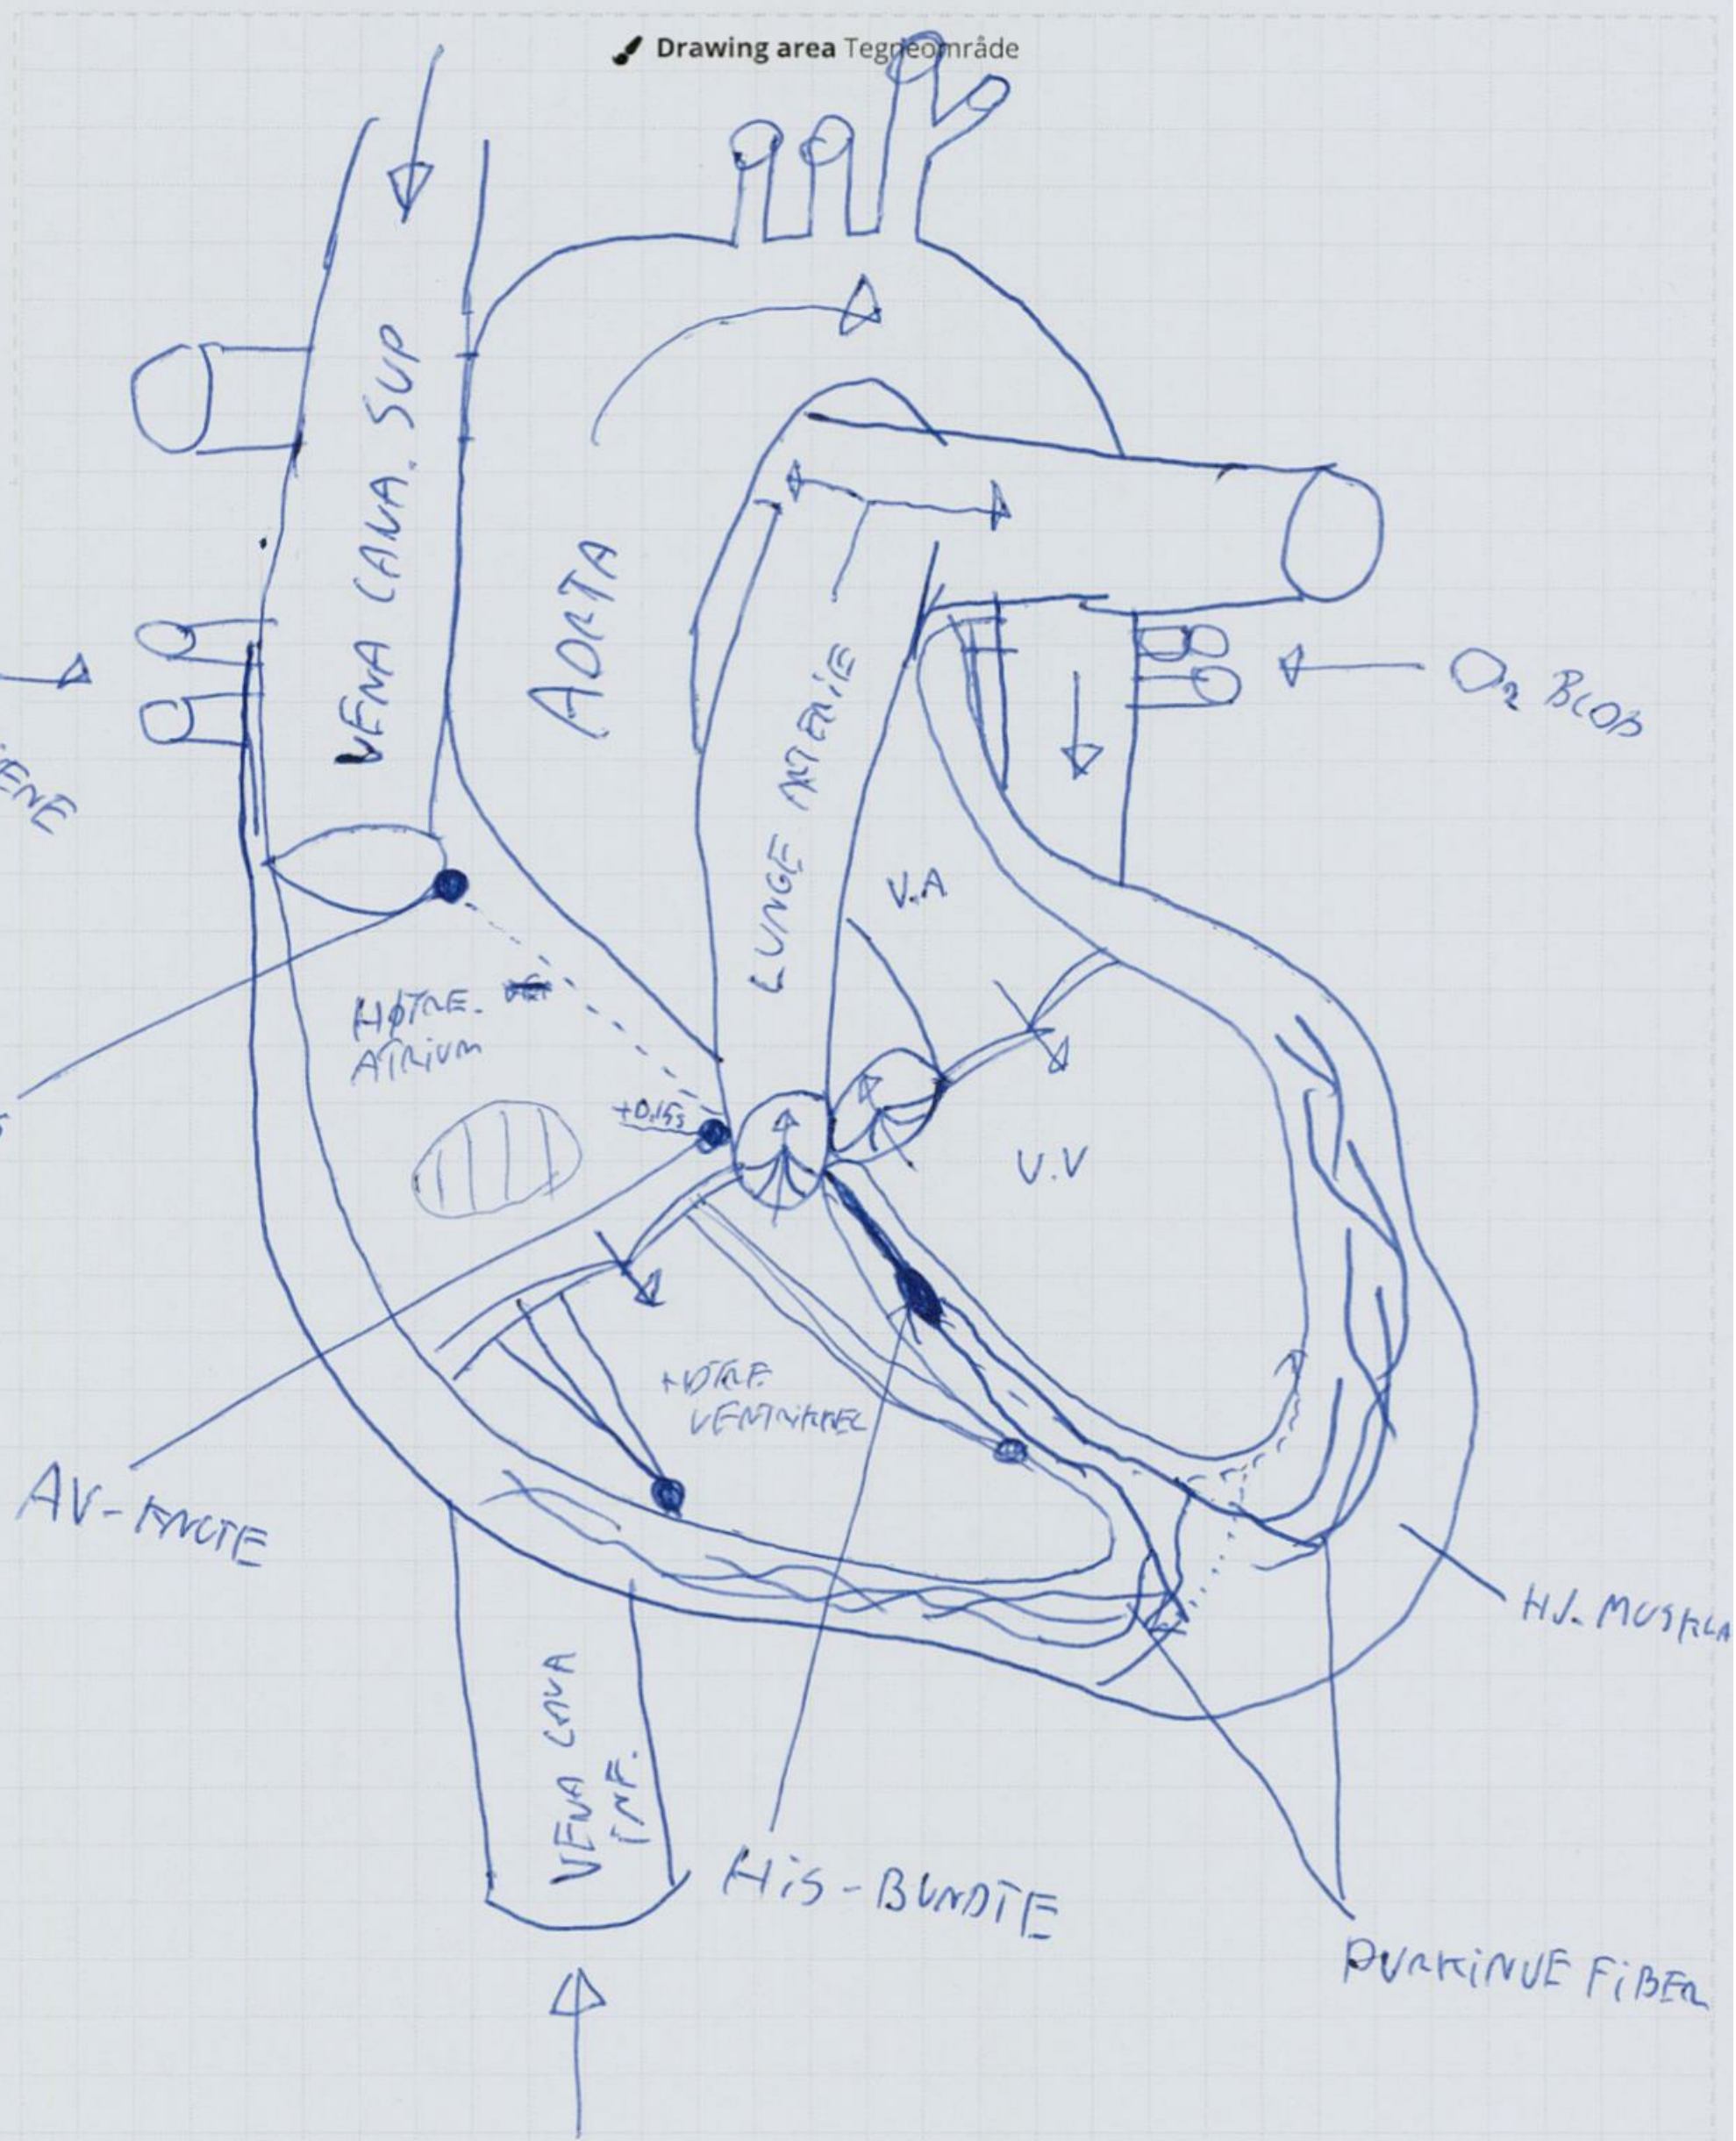 Drawing area Tegneområde
VENA CAVA. SUP
AORTA
LUNGE ARTERIE
O2 BLOD
V.A
HØTRE.
ATRIUM
+0.15s
V.V
HØTRE
VENTRIKKEL
AV-KNUTE
HJ. MUSKLA
VENA CAVA
INF.
HiS-BUNDTE
PURKINJE FiBER